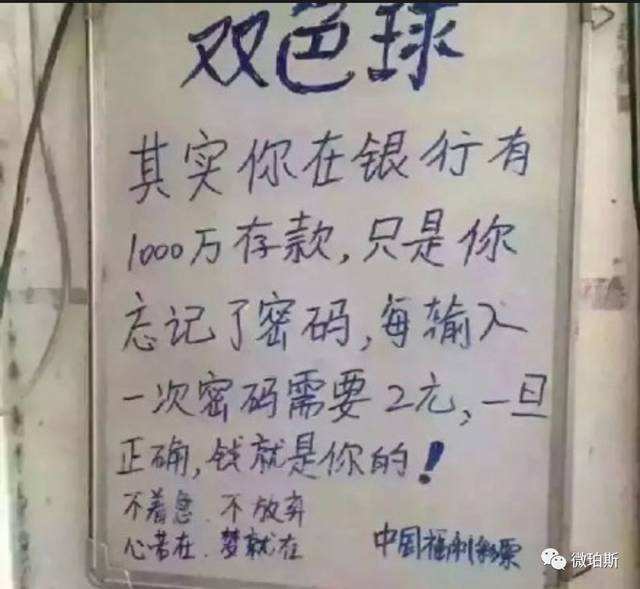 双色球
其实你在银行有
1000万存款,只是你
忘记了密码,每输入
一次密码需要2元,一旦
正确,钱就是你的!
不着急.不放弃
心若在.梦就在
中国福利彩票
微珀斯